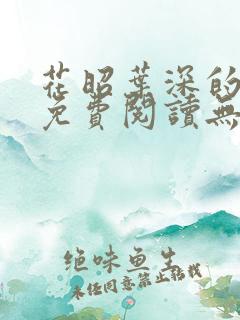 花昭葉深的
免費閱讀無
绝味鱼生
未经同意禁止转载